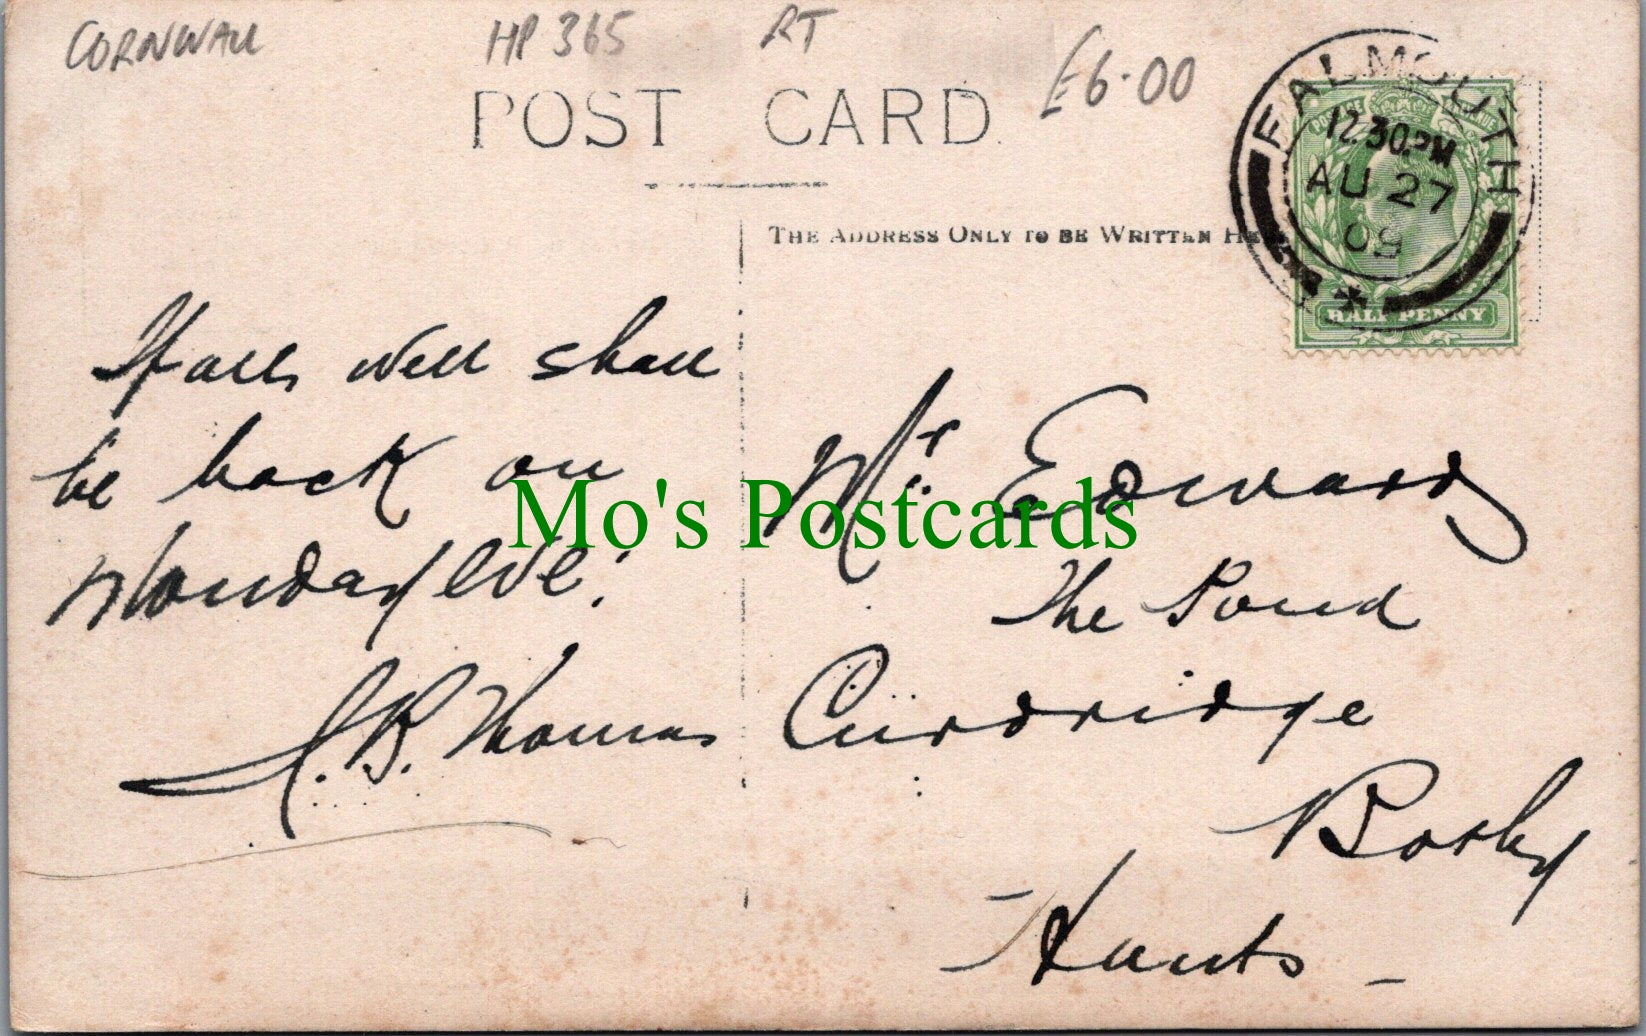 CORNWALL HP 365 RT £6.00
POST CARD.
FALMOUTH
12.30.PM
AU 27
09
HALF PENNY
THE ADDRESS ONLY TO BE WRITTEN
If all well shall
be back on
Monday eve!
B. Thomas
Mr. Edward
The Pond
Curdridge
Botley
Hants
Mo's Postcards